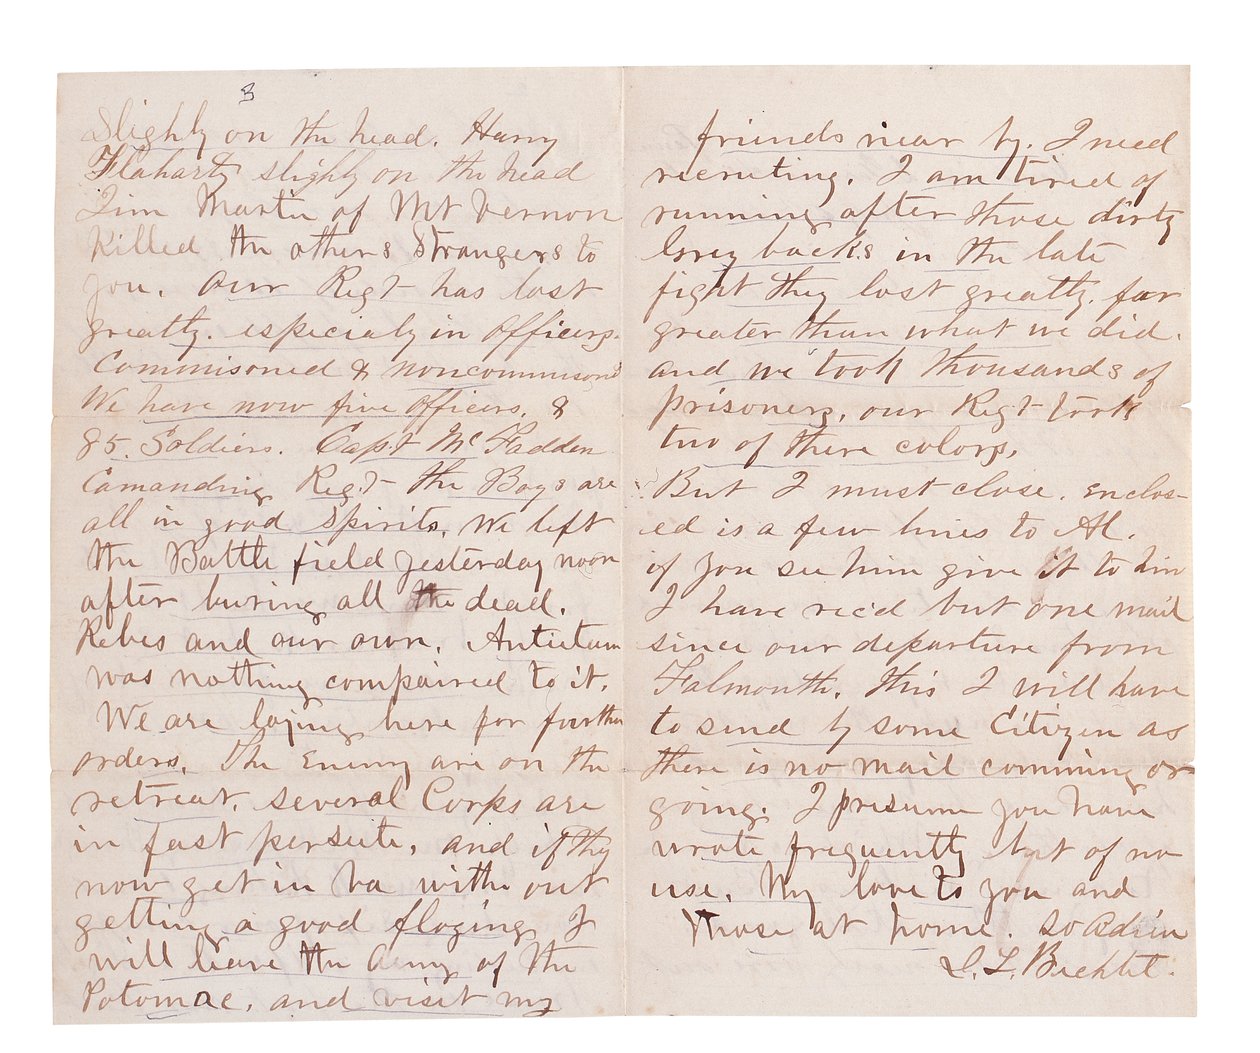 3
Slighly on the head. Harry
Flaharty slighly on the head
Jim Martin of Mt Vernon
Killed the others Strangers to
you. Our Regt has lost
greatly. especialy in Officers.
Commisoned & noncommisond
We have now five Officers. &
85. Soldiers. Capt McFadden
Comanding Regt the Boys are
all in good spirits. We left
the Battle field yesterday noon
after buring all the dead.
Rebes and our own. Antietam
was nothing compaired to it.
We are laying here for further
orders. The Enemy are on the
retreat. several Corps are
in fast persuite. and if they
now get in Va with out
getting a good floging I
will leave the Army of the
Potomac. and visit my
friends near by. I need
recruting. I am tired of
running after those dirty
Grey backs in the late
fight they lost greatly. far
greater than what we did.
and we took thousands of
prisoners. our Regt took
two of there colors.
But I must close. enclos-
ed is a few lines to Al.
if you see him give it to him
I have rec'd but one mail
since our departure from
Falmouth. this I will have
to send by some Citizen as
there is no mail comming or
going. I presume you have
wrote frequently but of no
use. My love to you and
those at home. So Adieu
S. L. Bechtel.